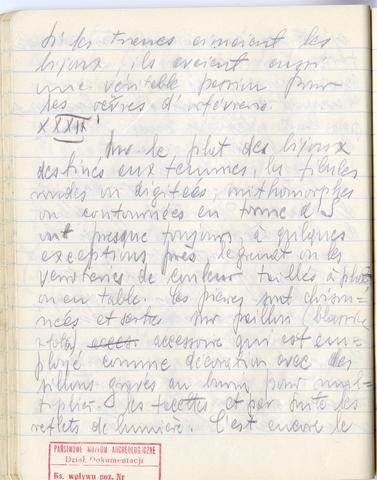 Si les francs aimaient les
bijoux, ils avaient aussi
une véritable passion pour
les œuvres d'orfèvrerie.
XXXII
Sur le plat des bijoux
destinés aux femmes, les fibules
rondes ou digitées, ornithomorphes
ou contournées en forme de S
ont presque toujours, à quelques
exceptions près, le grenat ou les
verroteries de couleur taillés à
ou en table. Les pierres sont
et serties sur paillon
accessoire qui est em-
ployé comme décoration avec des
sillons gravés au burin, pour mul-
tiplier les facettes et par suite les
reflets de lumière. C'est encore le
PAŃSTWOWE MUZEUM ARCHEOLOGICZNE
Dział Dokumentacji
Ks. wpływu poz. Nr